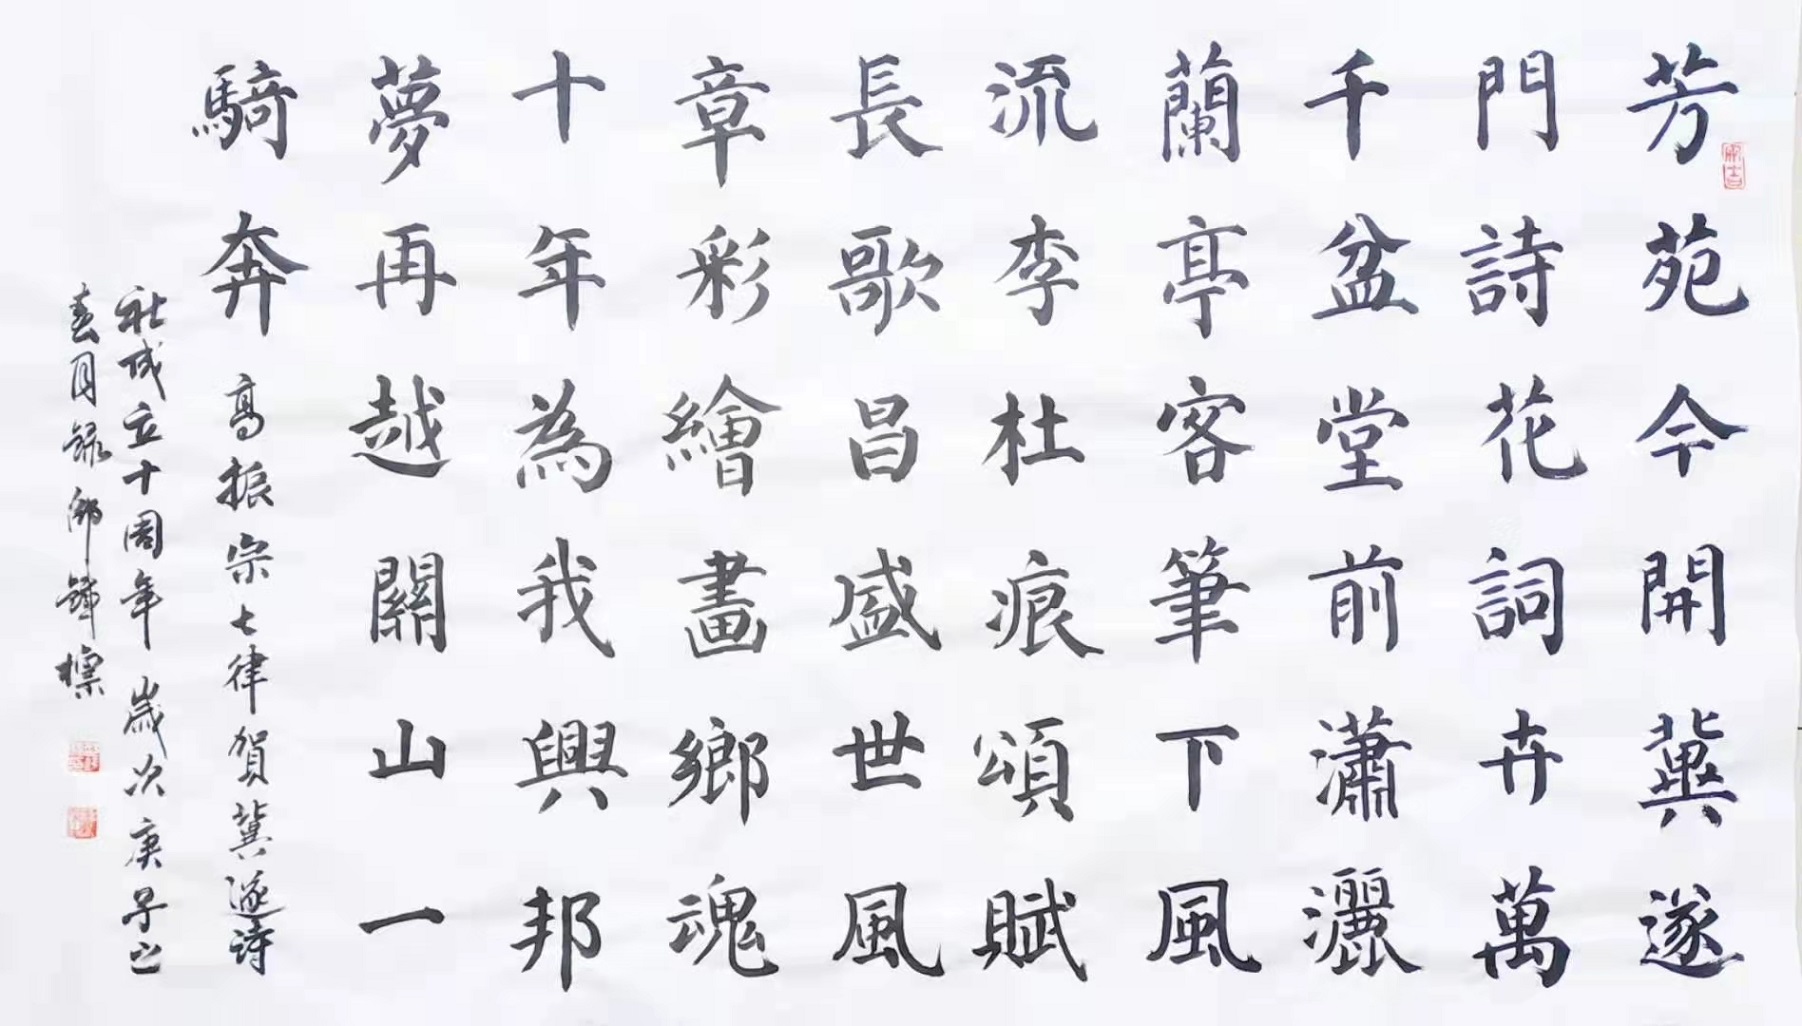 芳苑今開冀遂
門詩花詞卉萬
千盆堂前瀟灑
蘭亭客筆下風
流李杜痕頌賦
長歌昌盛世風
章彩繪畫鄉魂
十年為我興邦
夢再越關山一
騎奔
高振宗七律賀冀遂詩
社成立十周年歲次庚子之
春月錄鄉鋒標